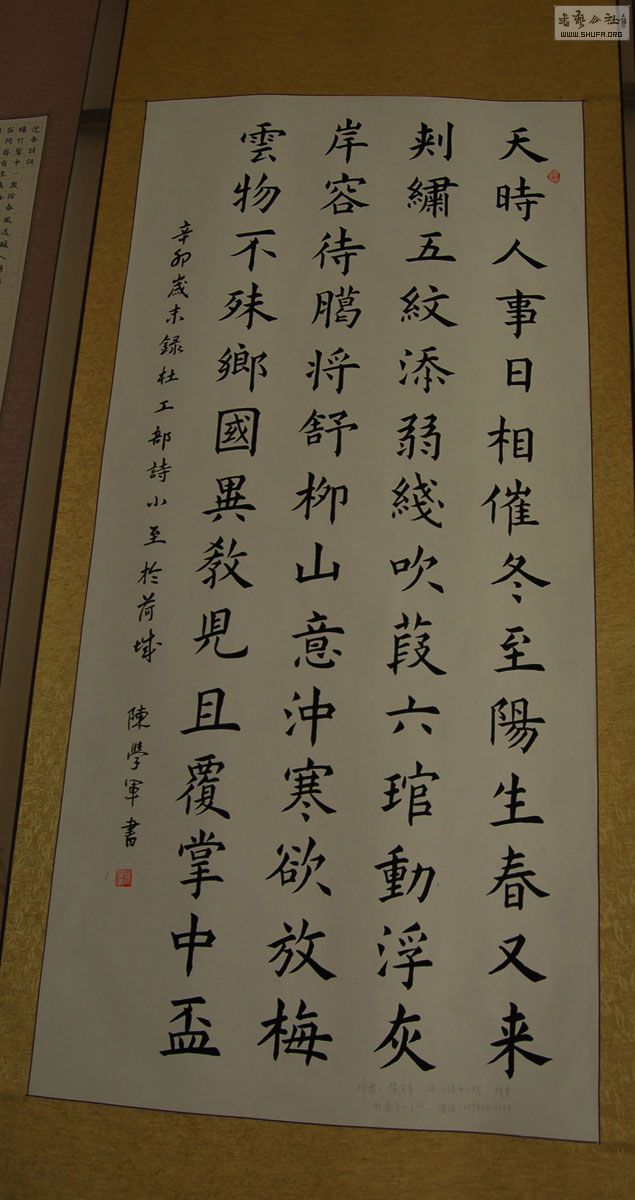 天時人事日相催冬至陽生春又来
刺繡五紋添弱綫吹葭六琯動浮灰
岸容待臈将舒柳山意沖寒欲放梅
雲物不殊鄉國異教児且覆掌中盃
辛卯歲末錄杜工部詩小至於荷城
陳學軍書
书艺公社
WWW.SHUFA.ORG
迎春詩詞